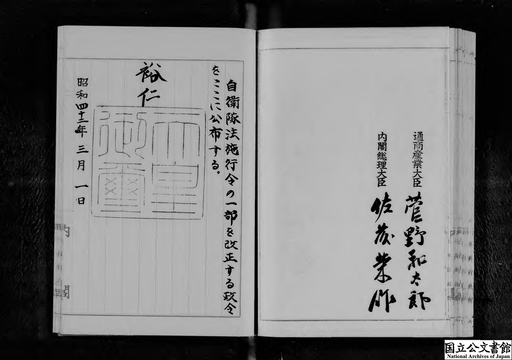 通商産業大臣 菅野和太郎
内閣総理大臣 佐藤榮作
自衛隊法施行令の一部を改正する政令
をここに公布する。
裕仁
天皇
御璽
昭和四十二年三月一日
内閣
国立公文書館
National Archives of Japan